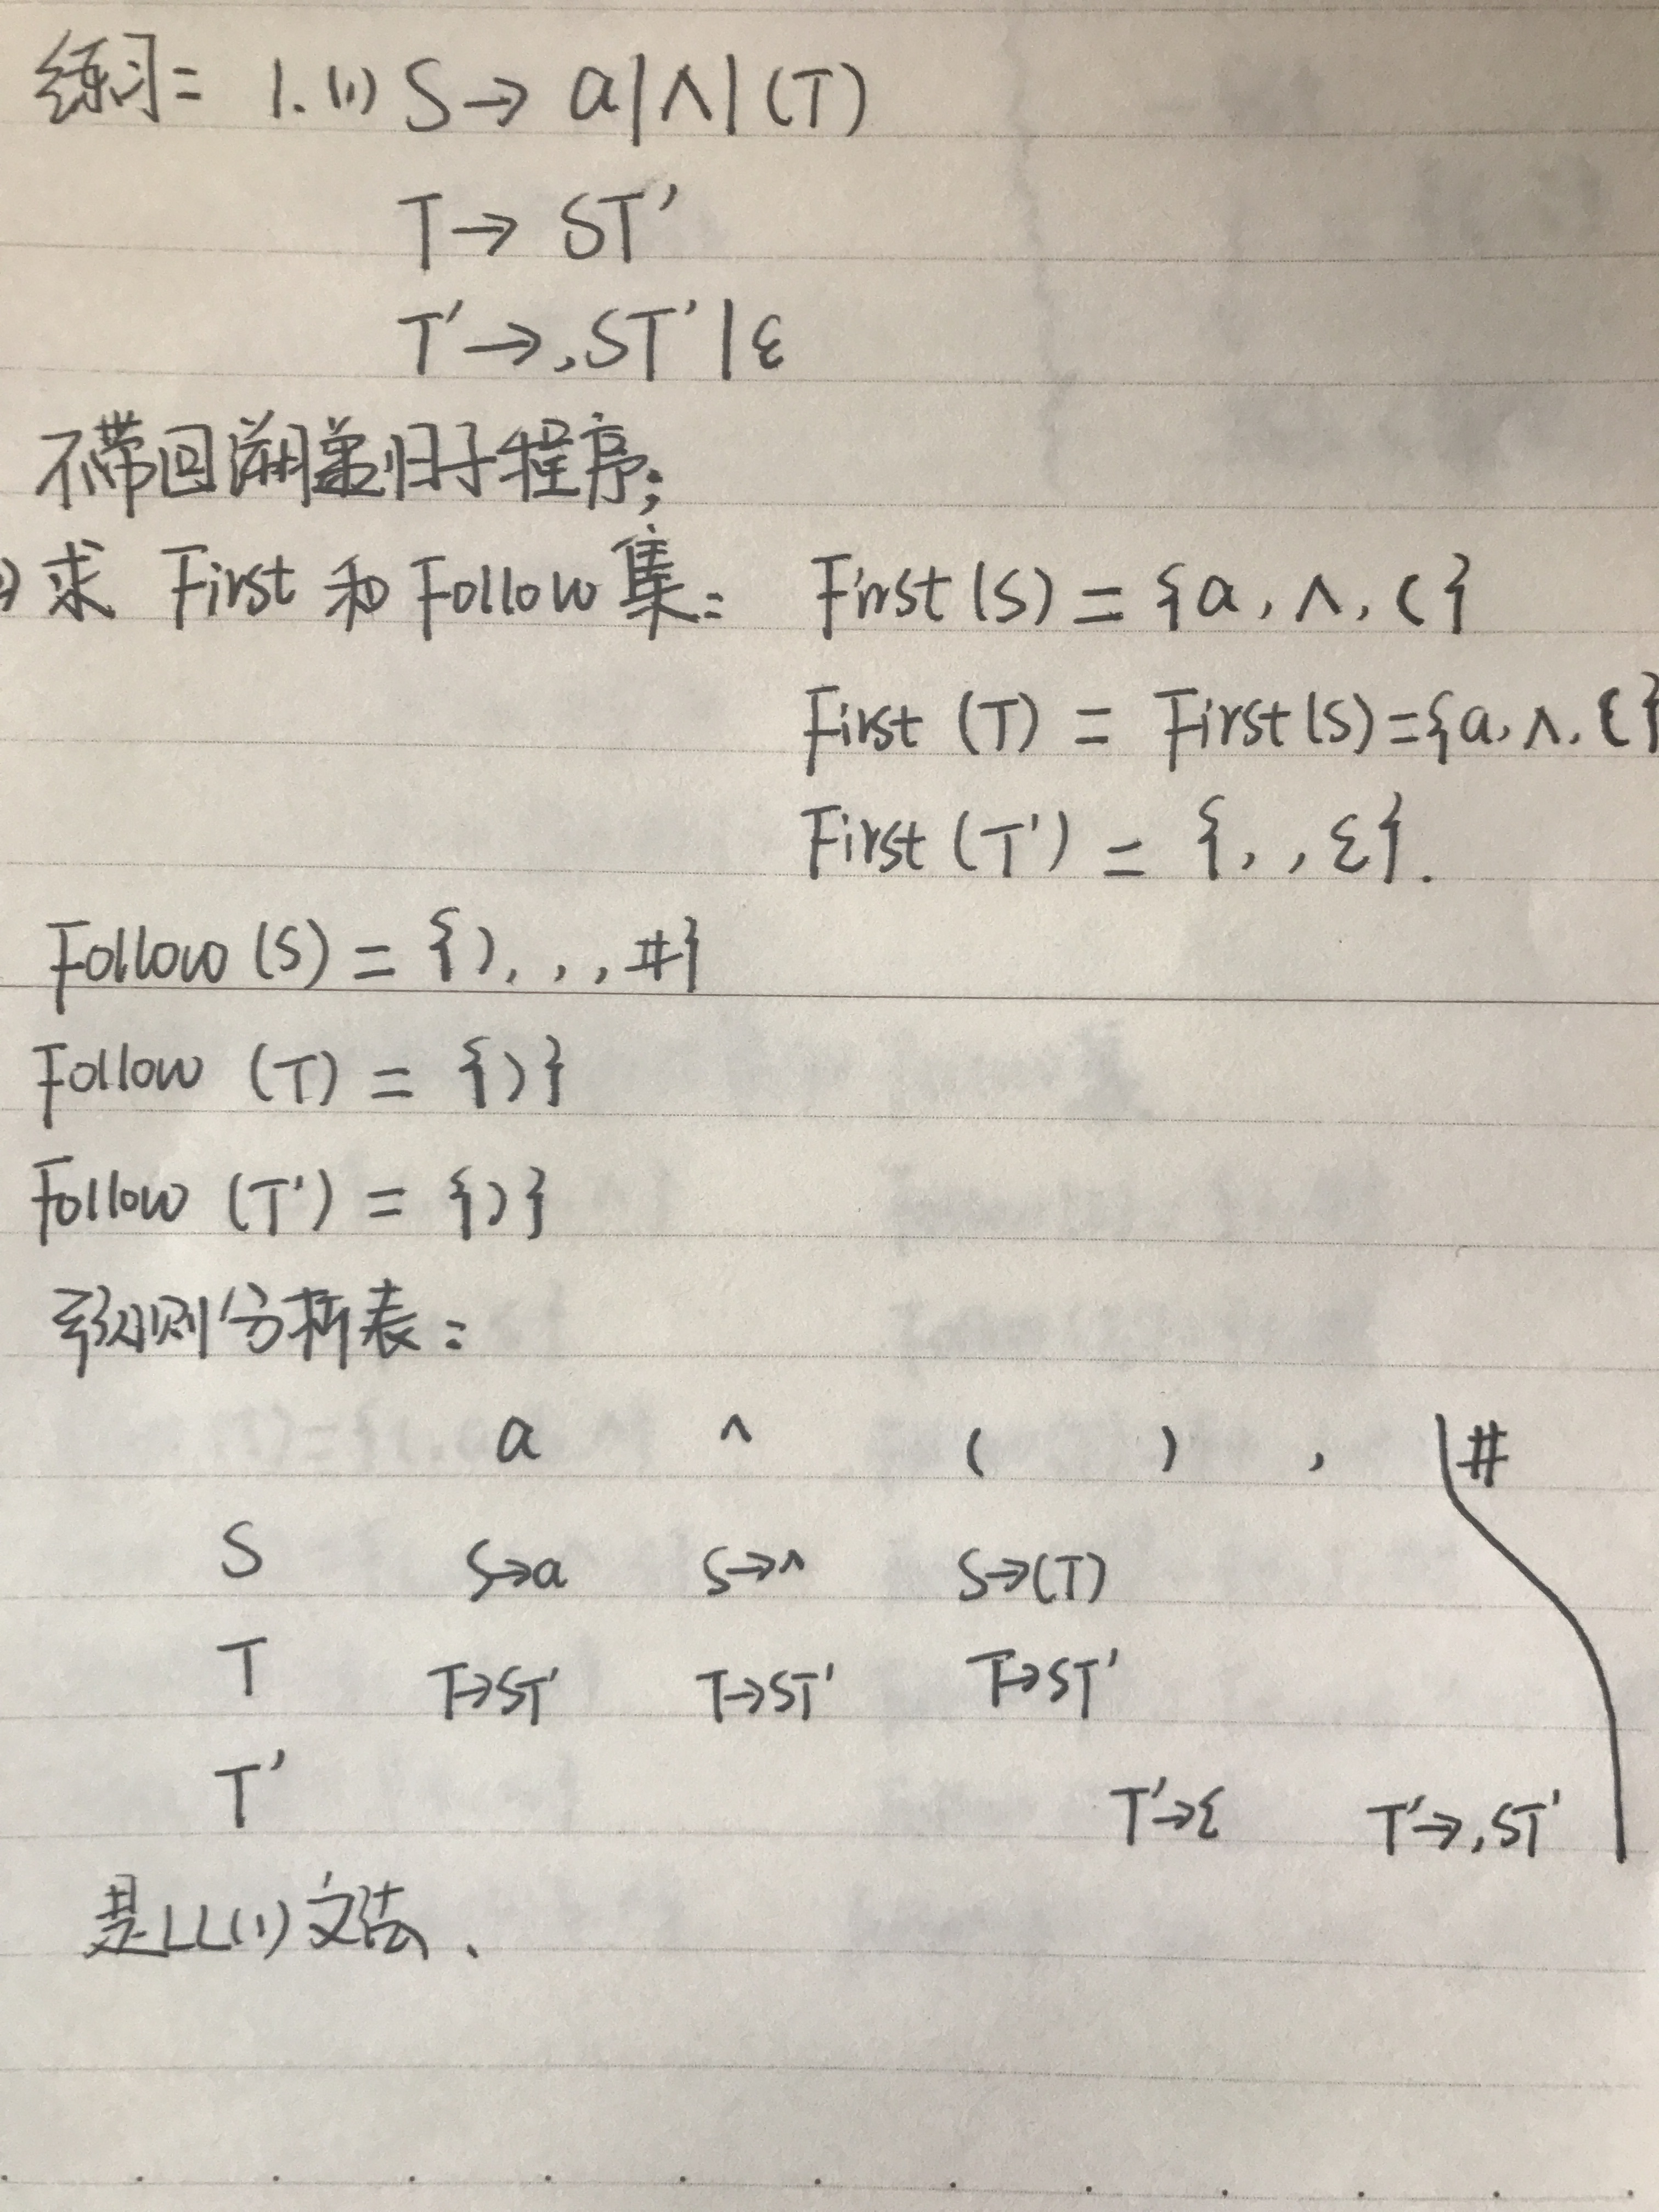 练习: 1. (1) S → a | ∧ | (T)
T → ST'
T' → ,ST' | ε
不带回溯递归子程序;
) 求 First 和 Follow 集: First (S) = {a, ∧, (}
First (T) = First (S) = {a, ∧, (}
First (T') = {, , ε}.
Follow (S) = {), , , #}
Follow (T) = {)}
Follow (T') = {)}
预测分析表:
a ∧ ( ) , #
S S→a S→∧ S→(T)
T T→ST' T→ST' T→ST'
T' T'→ε T'→,ST'
是LL(1)文法、